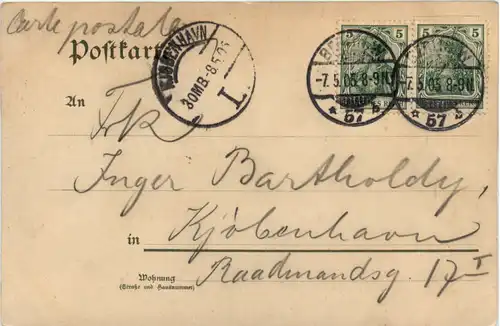 Carte postale
Postkarte
KJØBENHAVN
30MB-8.5.05
I
5 5
BERLIN, W.
-7.5.05.8-9N.
* 57 b
BERLIN, W.
-7.5.05.8-9N.
* 57 b
An
Frk
Inger Bartholdy,
in Kjöbenhavn
Wohnung
(Straße und Hausnummer)
Raadmandsg. 17 I